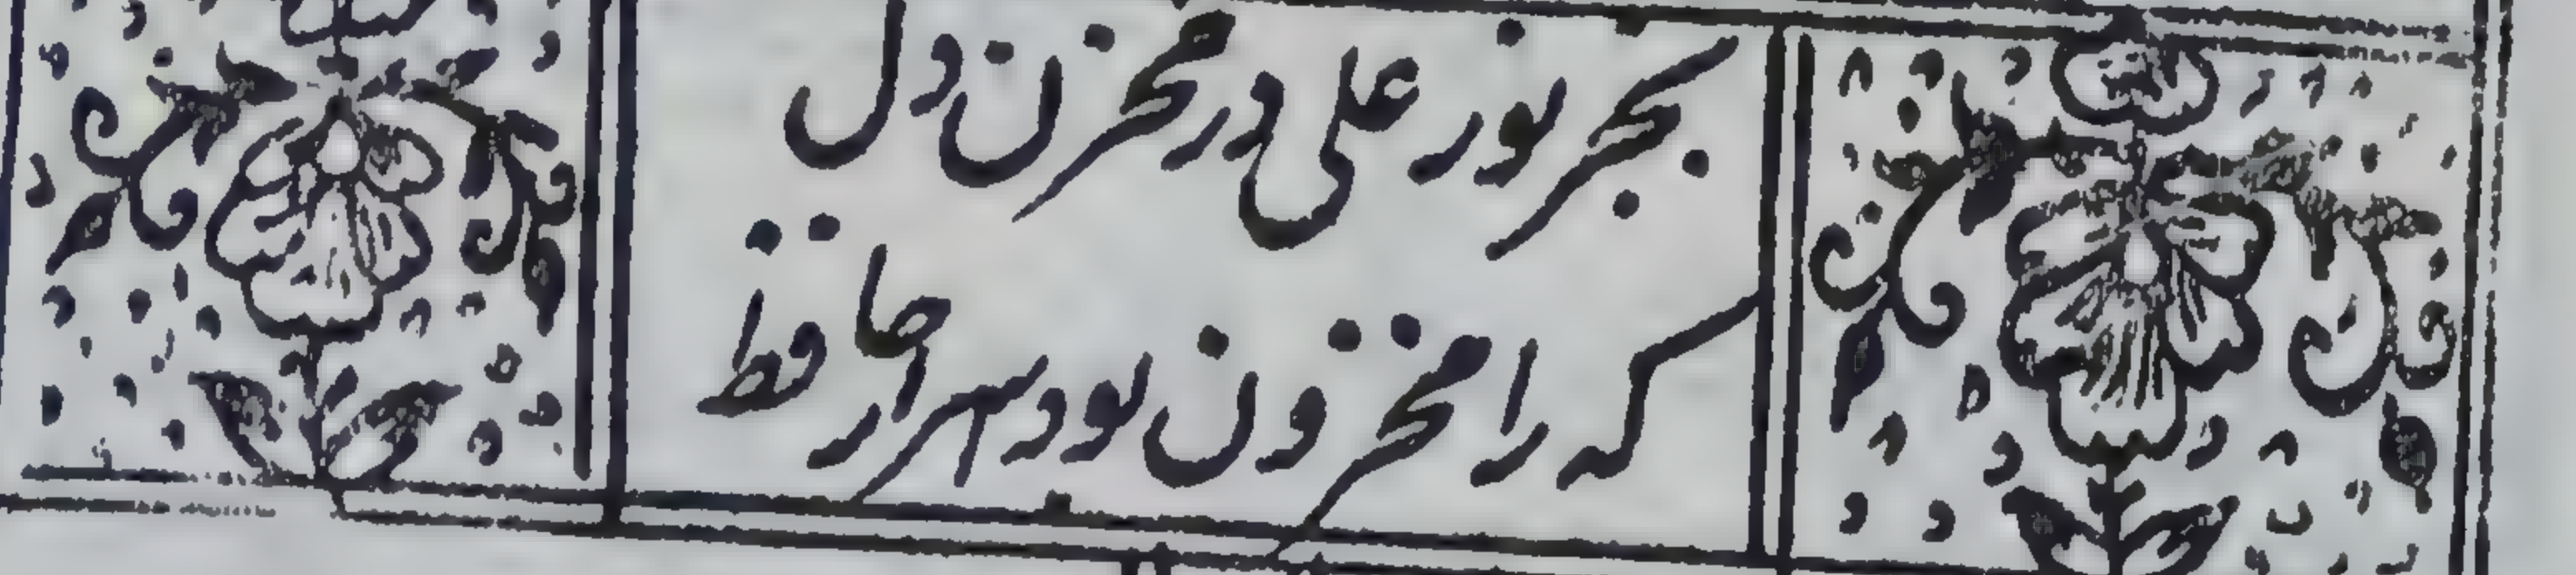 بجز نور علی در مخزن دل
که را مخزون بود اسرار حافظ